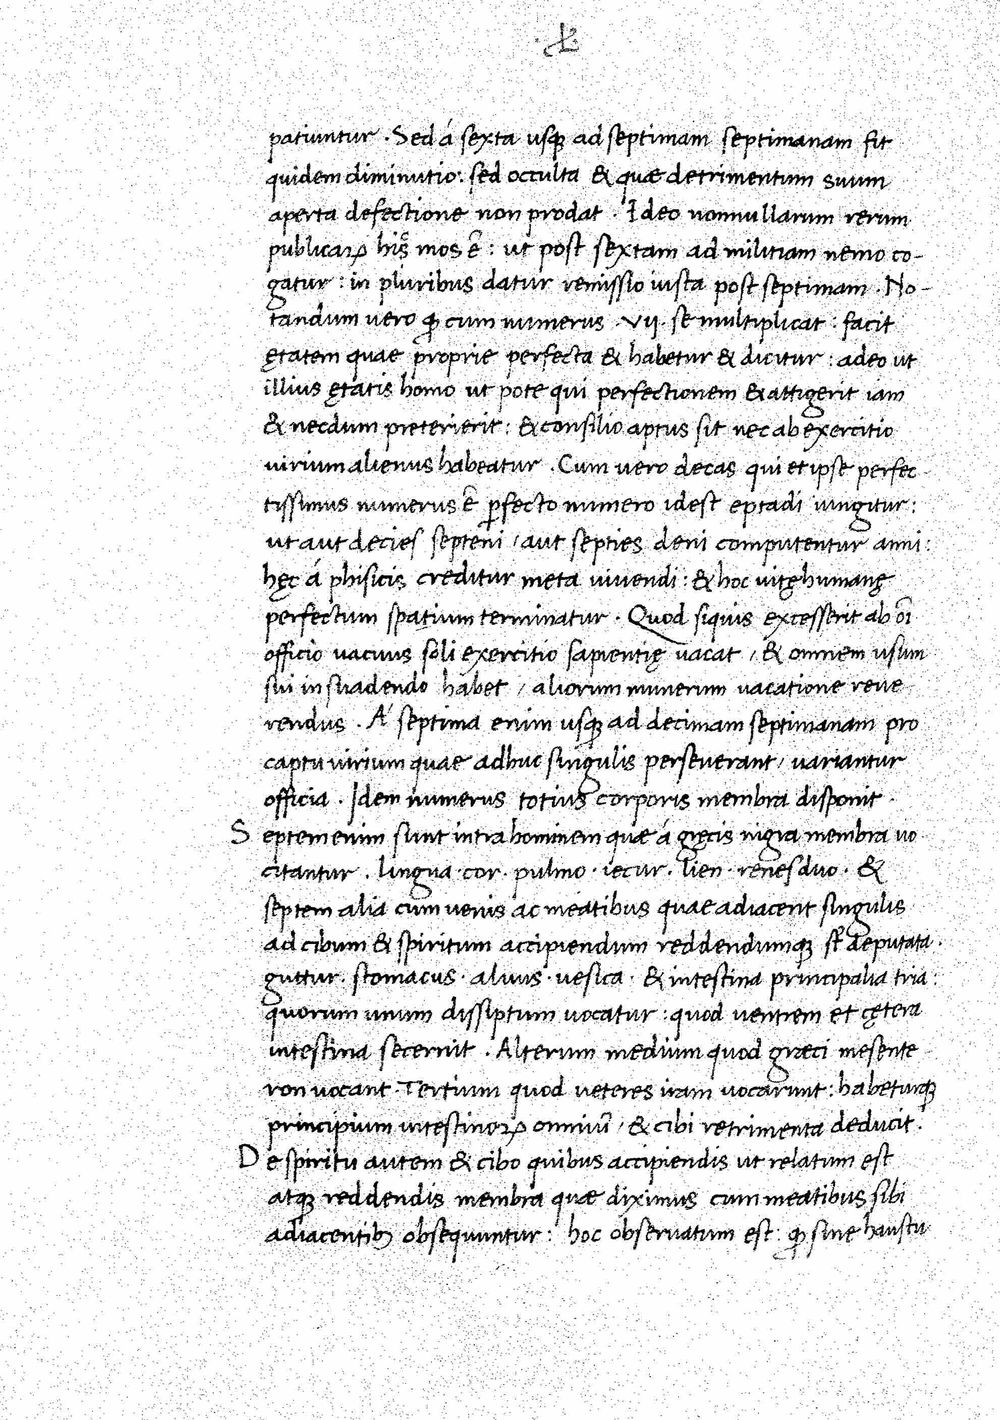 patiuntur . Sed á sexta usq; ad septimam septimanam fit
quidem diminutio: sed occulta & quæ detrimentum suum
aperta defectione non prodat . Ideo nonnullarum rerum
publicaꝝ his mos ē : ut post sextam ad militiam nemo co-
gatur : in pluribus datur remissio iusta post septimam . No-
tandum vero ꝙ cum numerus . VII . se multiplicat : facit
ętatem quae proprie perfecta & habetur & dicitur : adeo ut
illius ętatis homo ut pote qui perfectionem & attigerit iam
& necdum preterierit : & consilio aptus sit nec ab exercitio
virium alienus habeatur . Cum vero decas qui et ipse perfec
tissimus numerus ē ꝑfecto numero idest eptadi iungitur :
ut aut decies septeni / aut septies deni computentur anni :
hęc á phisicis creditur meta vivendi : & hoc vitę humanę
perfectum spatium terminatur . Quod siquis excesserit ab oī
officio vacuus soli exercitio sapientię vacat / & omnem usum
sui in suadendo habet / aliorum munerum vacatione reve
rendus . A' septima enim usq; ad decimam septimanam pro
captu virium quae adhuc singulis perseverant / variantur
officia . Idem numerus totius corporis membra disponit .
S eptem enim sunt intra hominem quæ á gręcis nigra membra vo
citantur . lingua . cor . pulmo . iecur . lien . renes duo . &
septem alia cum venis ac meatibus quae adiacent singulis
ad cibum & spiritum accipiendum reddendumq; st̄ deputata .
guttur . stomacus . alvus . vesica . & intestina principalia tria :
quorum unum dissiptum vocatur : quod ventrem et cętera
intestina secernit . Alterum medium quod græci mesente
ron vocant . Tertium quod veteres iram vocarunt : habeturq;
principium intestinoꝝ omniū / & cibi retrimenta deducit .
D e spiritu autem & cibo quibus accipiendis ut relatum est
atq; reddendis membra quæ diximus cum meatibus sibi
adiacentib; obsequuntur : hoc observatum est : ꝙ sine haustu